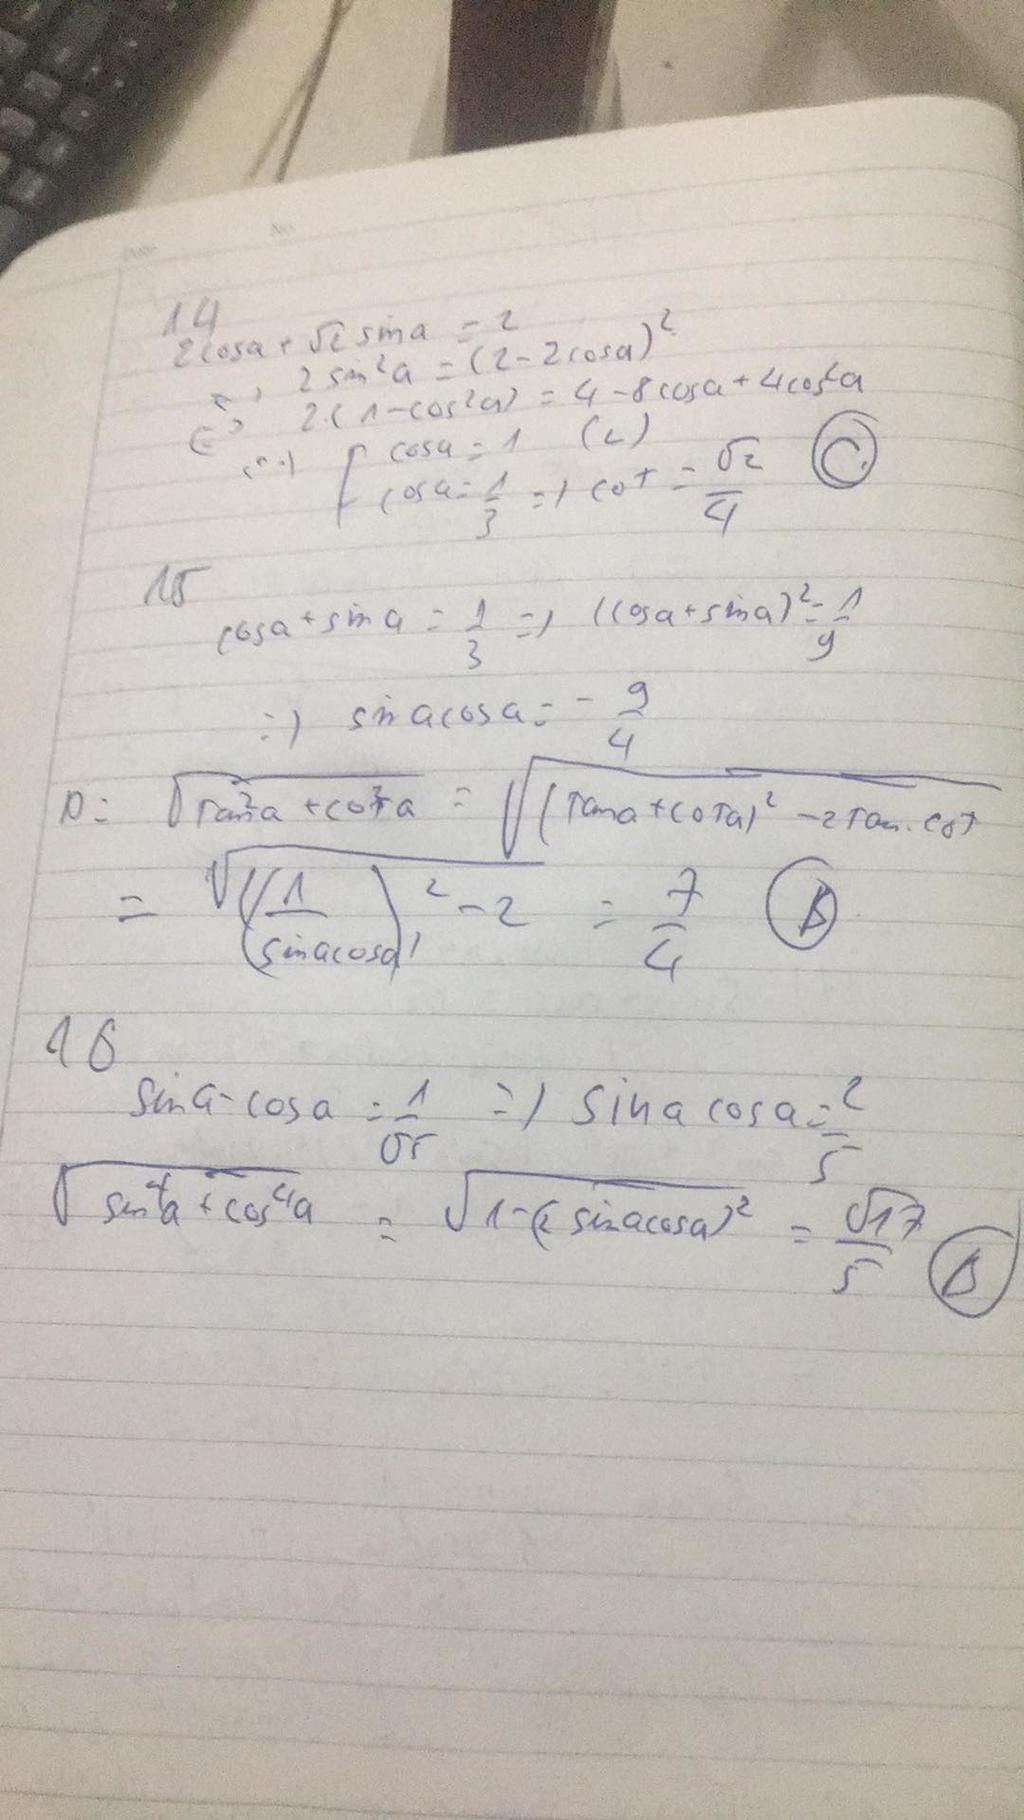 14
2cosa + √2 sina = 2
2 sin²a = (2 - 2cosa)²
2.(1 - cos²a) = 4 - 8cosa + 4cos²a
[ cosa = 1 (L)
cosa = 1/3 => cot = √2/4 (C)
15
cosa + sina = 1/3 => (cosa + sina)² = 1/9
=> sinacosa = - 9/4
D = √(tan²a + cot²a) = √((tana + cota)² - 2tan.cot)
= √((1/(sinacosa))² - 2) = 7/4 (B)
16
sina - cosa = 1/√5 => sinacosa = 2/5
√(sin⁴a + cos⁴a) = √(1 - (2 sinacosa)²) = √17/5 (B)